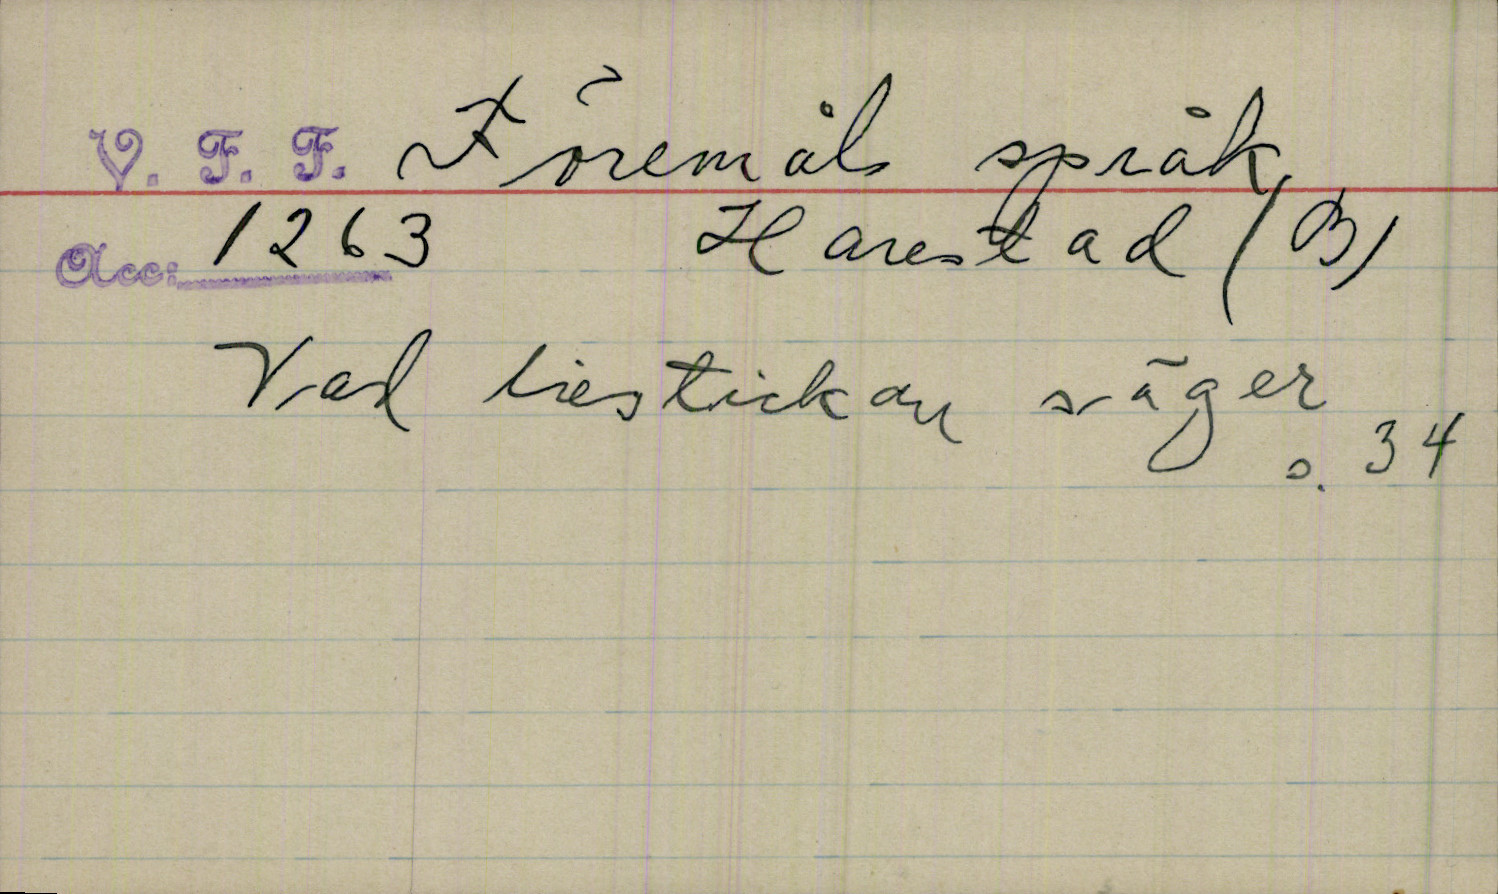 V. F. F. Föremåls språk
Acc: 1263 Harestad (B)
Vad liestickan säger
s. 34